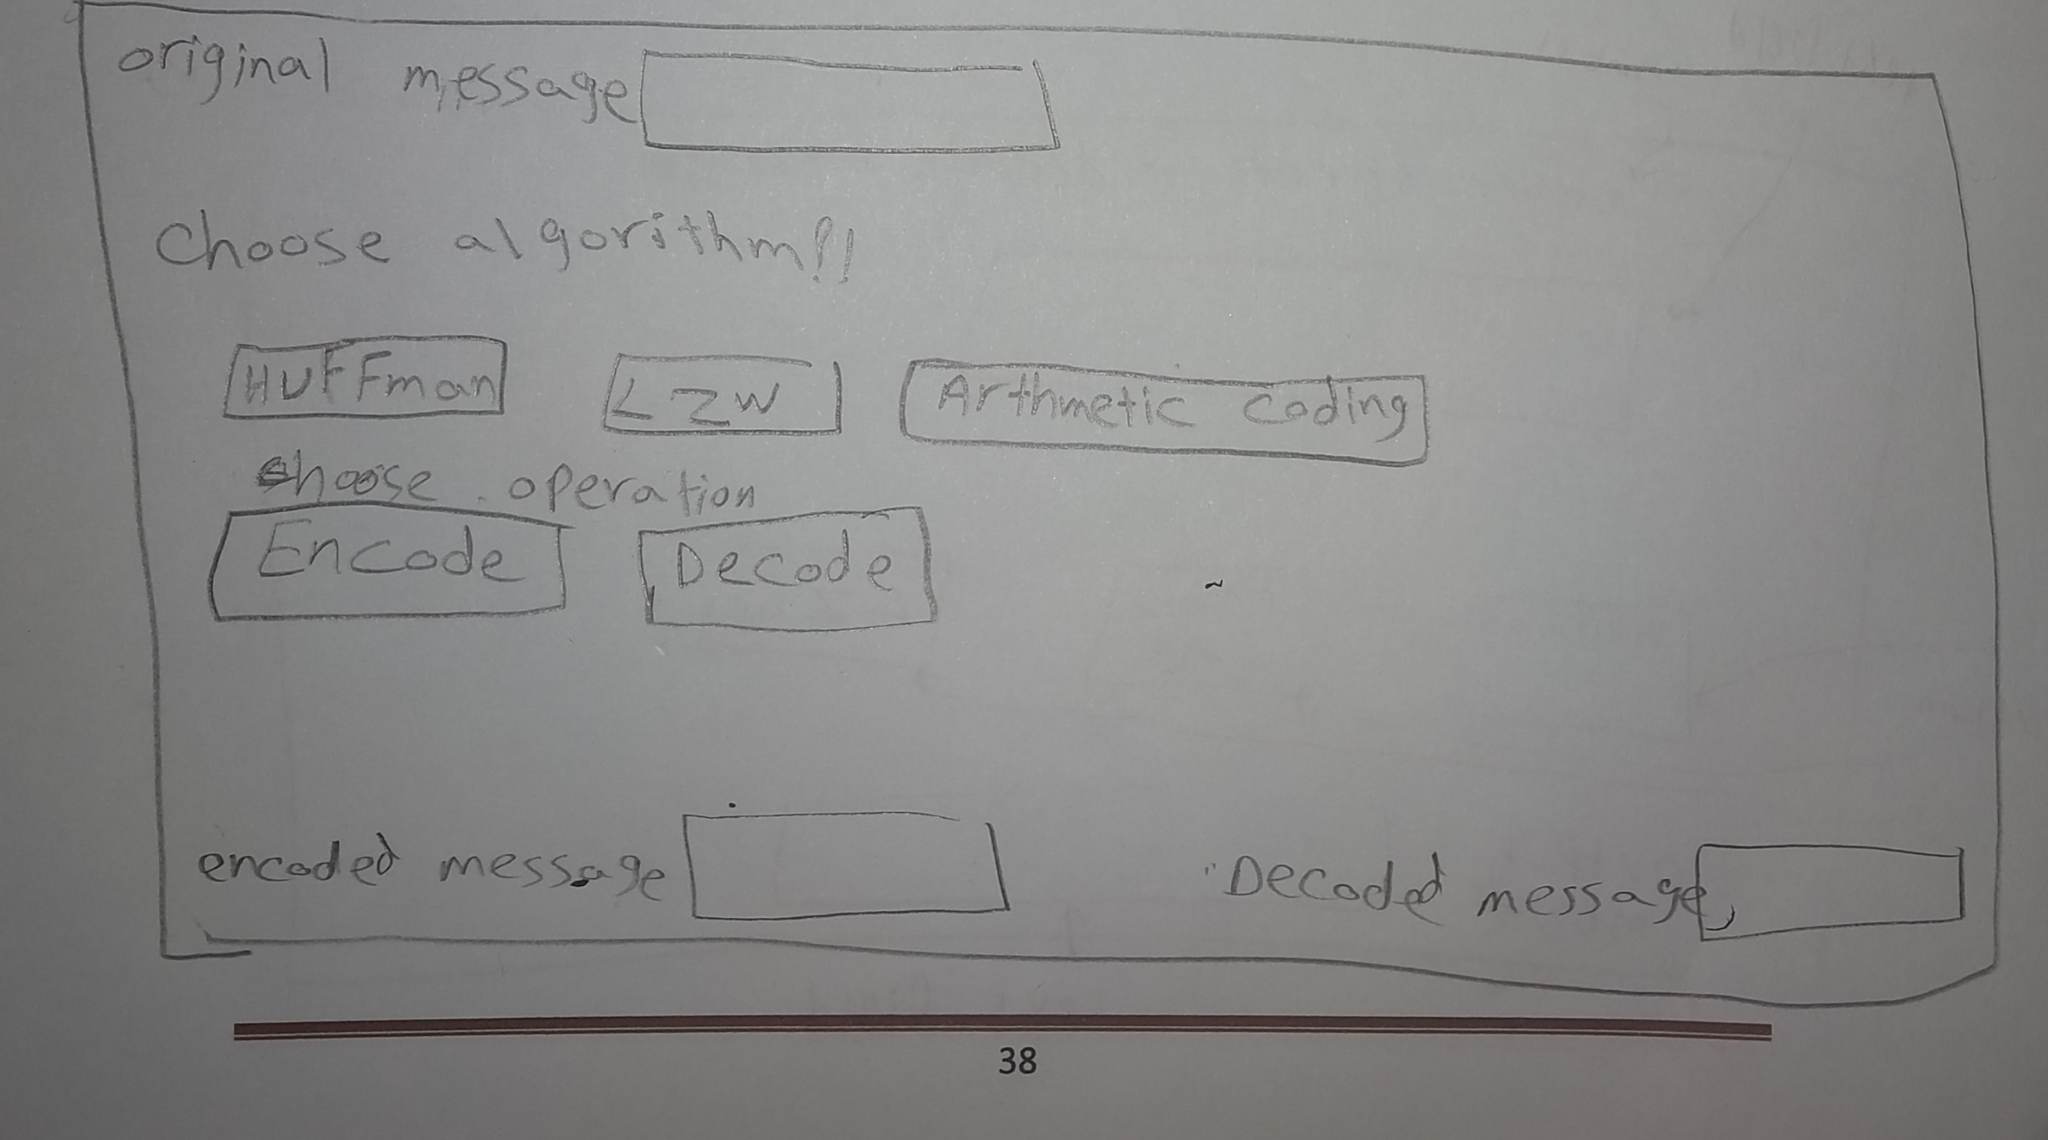 original message
Choose algorithm!!
HUFFman LZW Arthmetic Coding
choose operation
Encode Decode
encoded message Decoded message
38